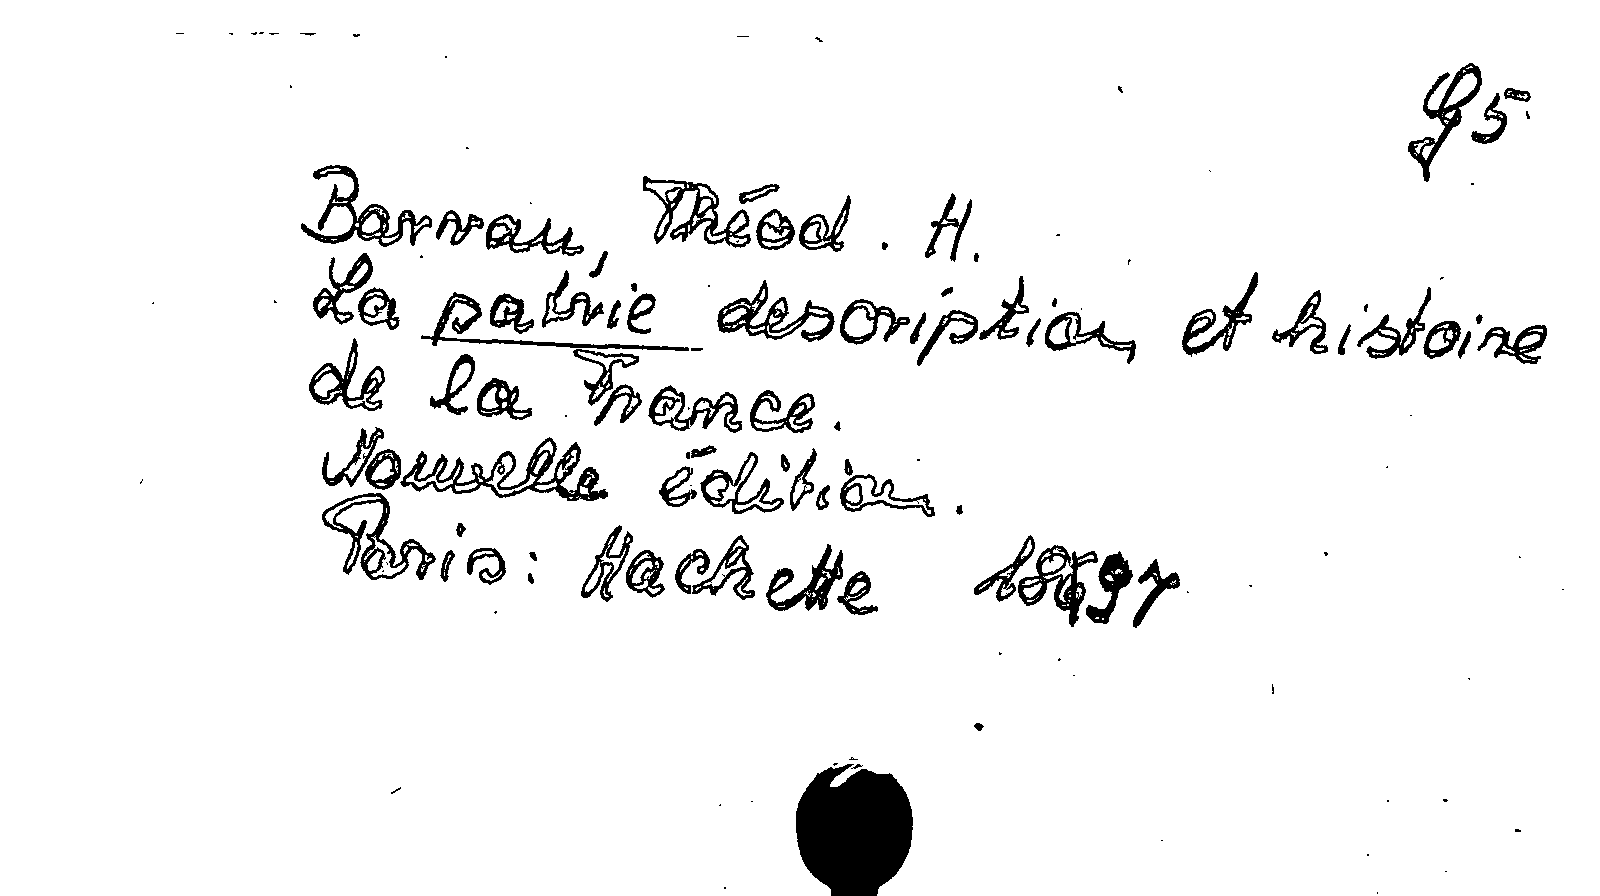 G5
Barrau, Théod. H.
La patrie description et histoire
de la France.
Nouvelle édition.
Paris: Hachette 1897